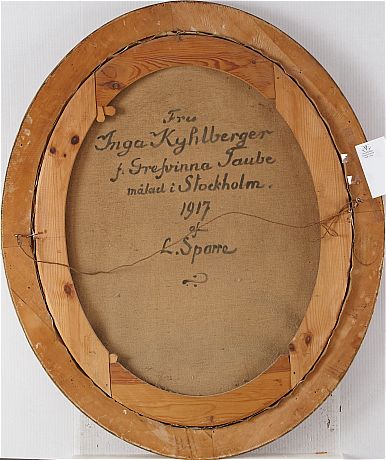 Fru
Inga Kyhlberger
f. Grefvinna Taube
målad i Stockholm.
1917
af
L. Sparre